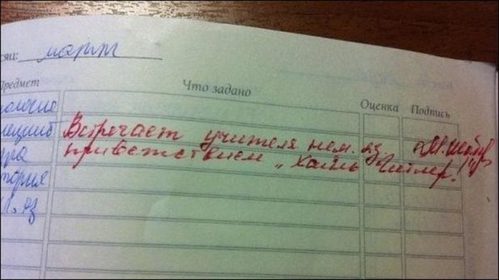 сяц: март
Предмет Что задано Оценка Подпись
Встречает учителя нем. яз
приветствием „Хайль Гитлер!"